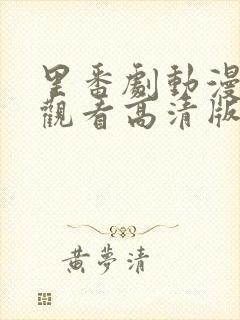 里番劇動漫
觀看高清版
黃夢清